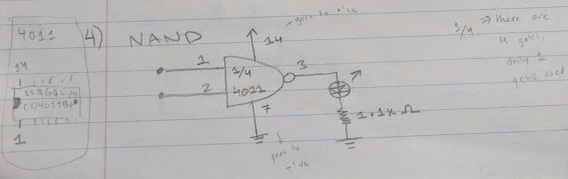 4011
14
1
4) NAND
goes to +ive
14
1
2
1/4
4011
3
7
1.1k Ω
goes to
-ive
1/4 → there are
4 gates,
only 1
gets used